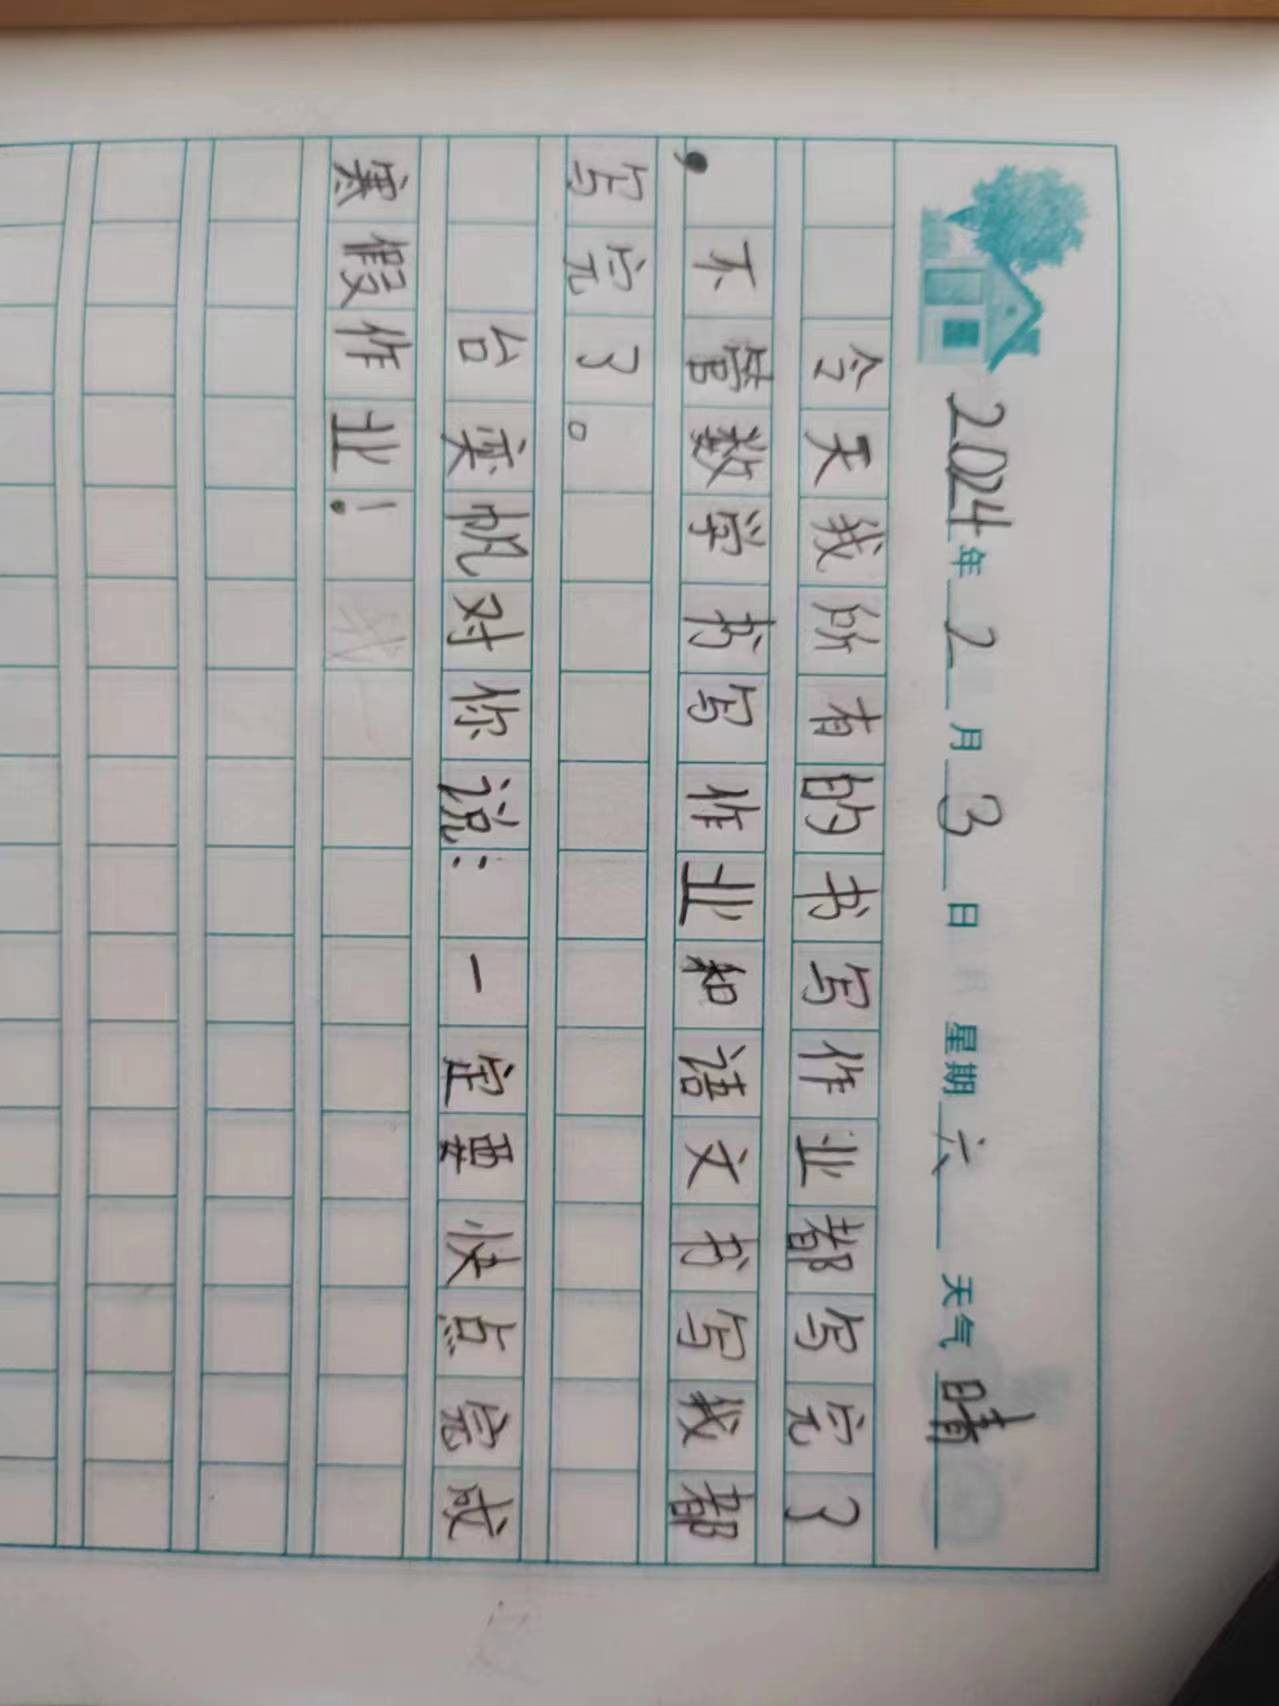 2024年2月3日 星期六 天气晴
今天我所有的书写作业都写完了
，不管数学书写作业和语文书写我都
写完了。
台奕帆对你说：一定要快点完成
寒假作业！